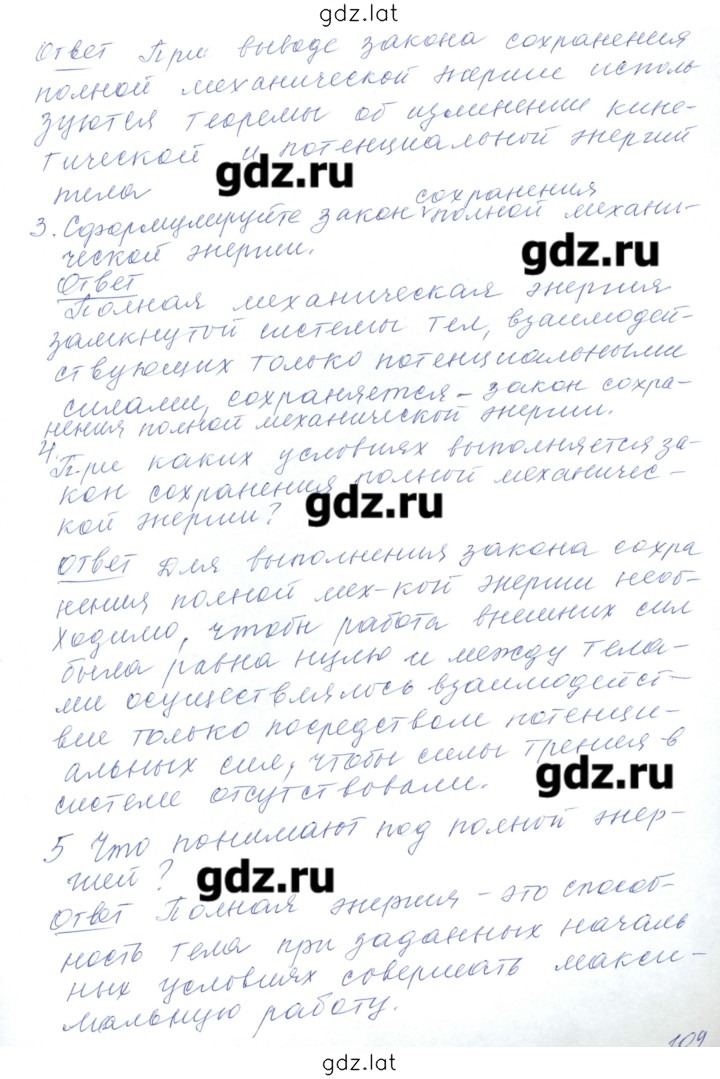 gdz.lat
Ответ При выводе закона сохранения
полной механической энергии исполь
зуются теоремы об изменении кине-
тической и потенциальной энергий
gdz.ru
тела
сохранения
3. Сформулируйте закон полной механи-
ческой энергии.
gdz.ru
Ответ
Полная механическая энергия
замкнутой системы тел, взаимодей-
ствующих только потенциальными
силами, сохраняется - закон сохра-
нения полной механической энергии.
4.
При каких условиях выполняется за-
кон сохранения полной механичес-
gdz.ru
кой энергии?
Ответ Для выполнения закона сохра
нения полной мех-кой энергии необ-
ходимо, чтобы работа внешних сил
была равна нулю и между тела-
ми осуществлялось взаимодейст-
вие только посредством потенци-
альных сил, чтобы силы трения в
gdz.ru
системе отсутствовали.
5 Что понимают под полной энер-
гией?
gdz.ru
Ответ Полная энергия - это способ-
ность тела при заданных началь
ных условиях совершать макси-
мальную работу.
109
gdz.lat